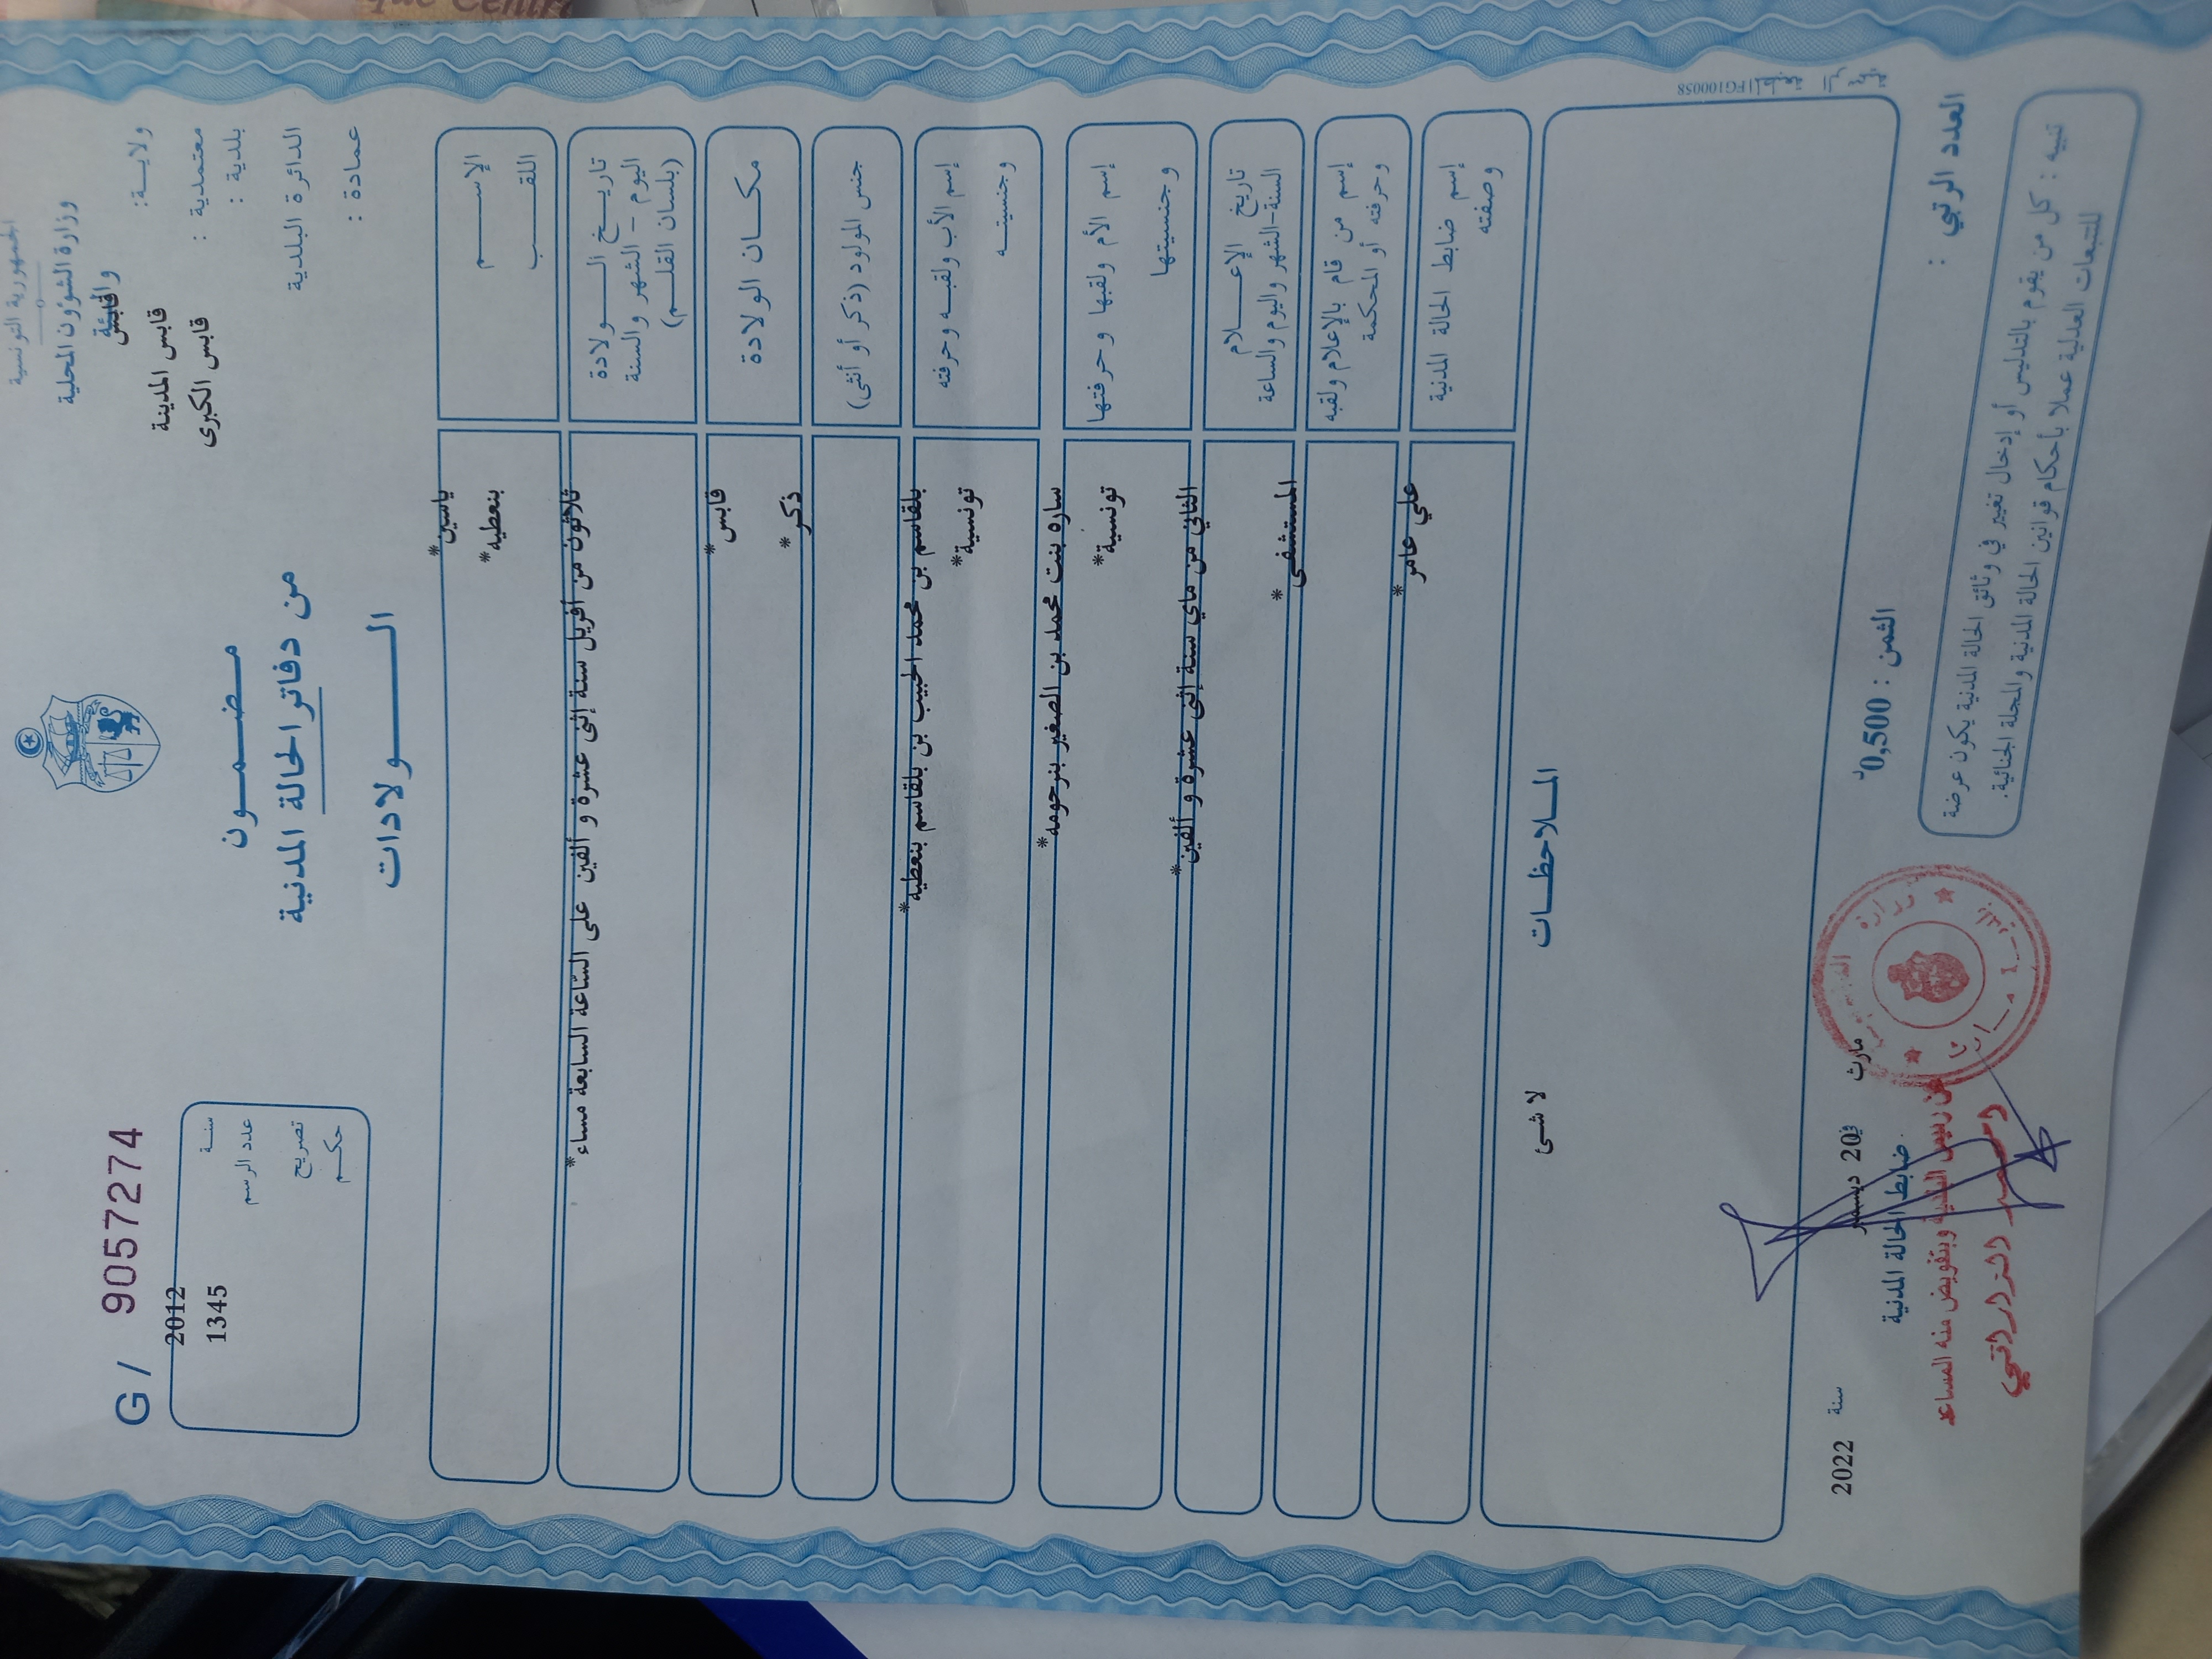 الجمهورية التونسية
وزارة الشؤون المحلية
والبيئة
ولايــة: قابس
معتمدية : قابس المدينة
بلدية : قابس الكبرى
الدائرة البلدية
عمادة :
مـضـمـون
من دفاتر الحالة المدنية
الـولادات
G / 9057274
سنـة 2012
عدد الرسم 1345
تصريح
حكـم
الإسـم ياسين*
اللقـب بنعطيه*
تاريـخ الـولادة ثلاثون من أفريل سنة إثنى عشرة و ألفين على السّاعة السابعة مساء*
اليوم - الشهر والسنة
(بلسان القلـم)
مكـان الولادة قابس*
جنس المولود (ذكر أو أنثى) ذكر*
إسم الأب ولقبـه وحرفته بلقاسم بن محمد الحبيب بن بلقاسم بنعطيه*
وجنسيتـه تونسية*
إسم الأم ولقبها وحرفتها ساره بنت محمد بن الصغير بنرحومه*
وجنسيتها تونسية*
تاريخ الإعـلام الثاني من ماي سنة إثنى عشرة و ألفين*
السنة-الشهر واليوم والساعة
إسم من قام بالإعلام ولقبه المستشفى*
وحرفته أو المحكمة
إسم ضابط الحالة المدنية علي عامر*
وصفته
الملاحظـات
لا شئ
المطبعة الرسمية FG100058
مارث في 20 ديسمبر سنة 2022
ضابط الحالة المدنية
عن رئيس البلدية وبتفويض منه المساعد
العدد الرتبي :
الثمن : 0,500د
تنبيه : كل من يقوم بالتدليس أو إدخال تغيير في وثائق الحالة المدنية يكون عرضة
للتتبعات العدلية عملا بأحكام قوانين الحالة المدنية والمجلة الجنائية.